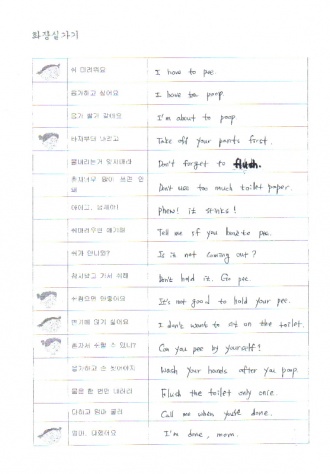 화장실가기
쉬 마려워요
I have to pee.
응가하고 싶어요
I have to poop.
응가 할거 같아요
I'm about to poop
바지부터 내리고
Take off your pants first.
물내리는거 잊지마라
Don't forget to flush.
휴지너무 많이 쓰면 안
돼
Don't use too much toilet paper.
아이고, 냄새야!
phew! it stinks!
쉬마려우면 얘기해
Tell me if you have to pee.
쉬가 안나와?
Is it not coming out?
참지말고 가서 쉬해
Don't hold it. Go pee.
It's not good to hold your pee.
변기에 앉기 싫어요
I don't want to sit on the toilet.
혼자서 쉬할 수 있니?
Can you pee by yourself?
응가하고 손 씻어야지
Wash your hands after you poop
물은 한 번만 내려라
Fluck the toilet only once.
다하고 엄마 불러
Call me when you're done.
엄마, 다했어요
I'm done, mom.